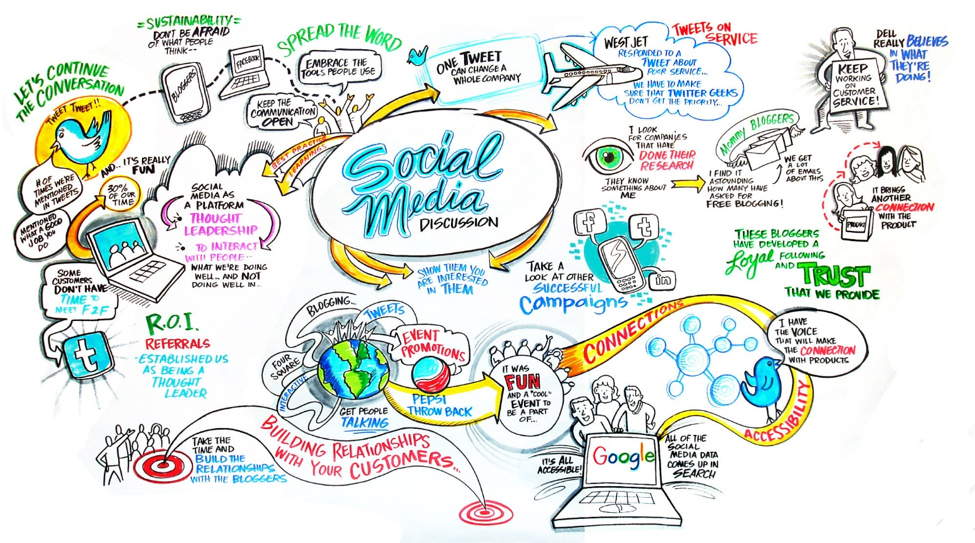 =SUSTAINABILITY=
DON'T BE AFRAID
OF WHAT PEOPLE
THINK--
SPREAD THE WORD
BLOGGERS
FACEBOOK
EMBRACE THE
TOOLS PEOPLE USE
KEEP THE
COMMUNICATION
OPEN
LET'S CONTINUE
THE CONVERSATION
TWEET TWEET!!
AND... IT'S REALLY
FUN
# OF TIMES WE'RE
MENTIONED
IN TWEETS
30%
OF OUR
TIME
MENTIONED
WHAT A GOOD
JOB YOU
DO
SOME
CUSTOMERS
DON'T HAVE
TIME TO
MEET F2F
t
BEST PRACTICE
LEARNINGS
SOCIAL
MEDIA AS
A PLATFORM
THOUGHT
LEADERSHIP
TO INTERACT
WITH PEOPLE--
WHAT WE'RE DOING
WELL... AND NOT
DOING WELL IN...
R.O.I.
REFERRALS
-ESTABLISHED US
AS BEING A
THOUGHT
LEADER
Social
Media
DISCUSSION
ONE TWEET
CAN CHANGE A
WHOLE COMPANY
TWEETS ON
SERVICE
WESTJET
RESPONDED TO A
TWEET ABOUT
POOR SERVICE...
WE HAVE TO MAKE
SURE THAT TWITTER GEEKS
DON'T GET THE PRIORITY...
DELL
REALLY BELIEVES
IN WHAT
THEY'RE
DOING!
KEEP
WORKING
ON CUSTOMER
SERVICE!
I LOOK
FOR COMPANIES
THAT HAVE
DONE THEIR
RESEARCH
THEY KNOW
SOMETHING ABOUT
ME
MOMMY BLOGGERS
WE GET
A LOT
OF EMAILS
ABOUT THIS
I FIND IT
ASTOUNDING
HOW MANY HAVE
ASKED FOR
FREE BLOGGING!
PRODUCT
IT BRINGS
ANOTHER
CONNECTION
WITH THE
PRODUCT
THESE BLOGGERS
HAVE DEVELOPED A
Loyal FOLLOWING
AND TRUST
THAT WE PROVIDE
SHOW THEM YOU
ARE INTERESTED
IN THEM
f
t
in
TAKE A
LOOK AT OTHER
SUCCESSFUL
Campaigns
BLOGGING...
TWEETS
FOUR
SQUARE
INTERACTIVE
EVENT
PROMOTIONS
GET PEOPLE
TALKING
PEPSI
THROW BACK
IT WAS
FUN
AND A "COOL"
EVENT TO
BE A PART
OF...
CONNECTIONS
I HAVE
THE VOICE
THAT WILL MAKE
THE CONNECTION
WITH PRODUCTS
ACCESSIBILITY
TAKE THE
TIME AND
BUILD THE
RELATIONSHIPS
WITH THE BLOGGERS
BUILDING RELATIONSHIPS
WITH YOUR CUSTOMERS...
IT'S ALL
ACCESSIBLE!
Google
ALL OF THE
SOCIAL
MEDIA DATA
COMES UP IN
SEARCH